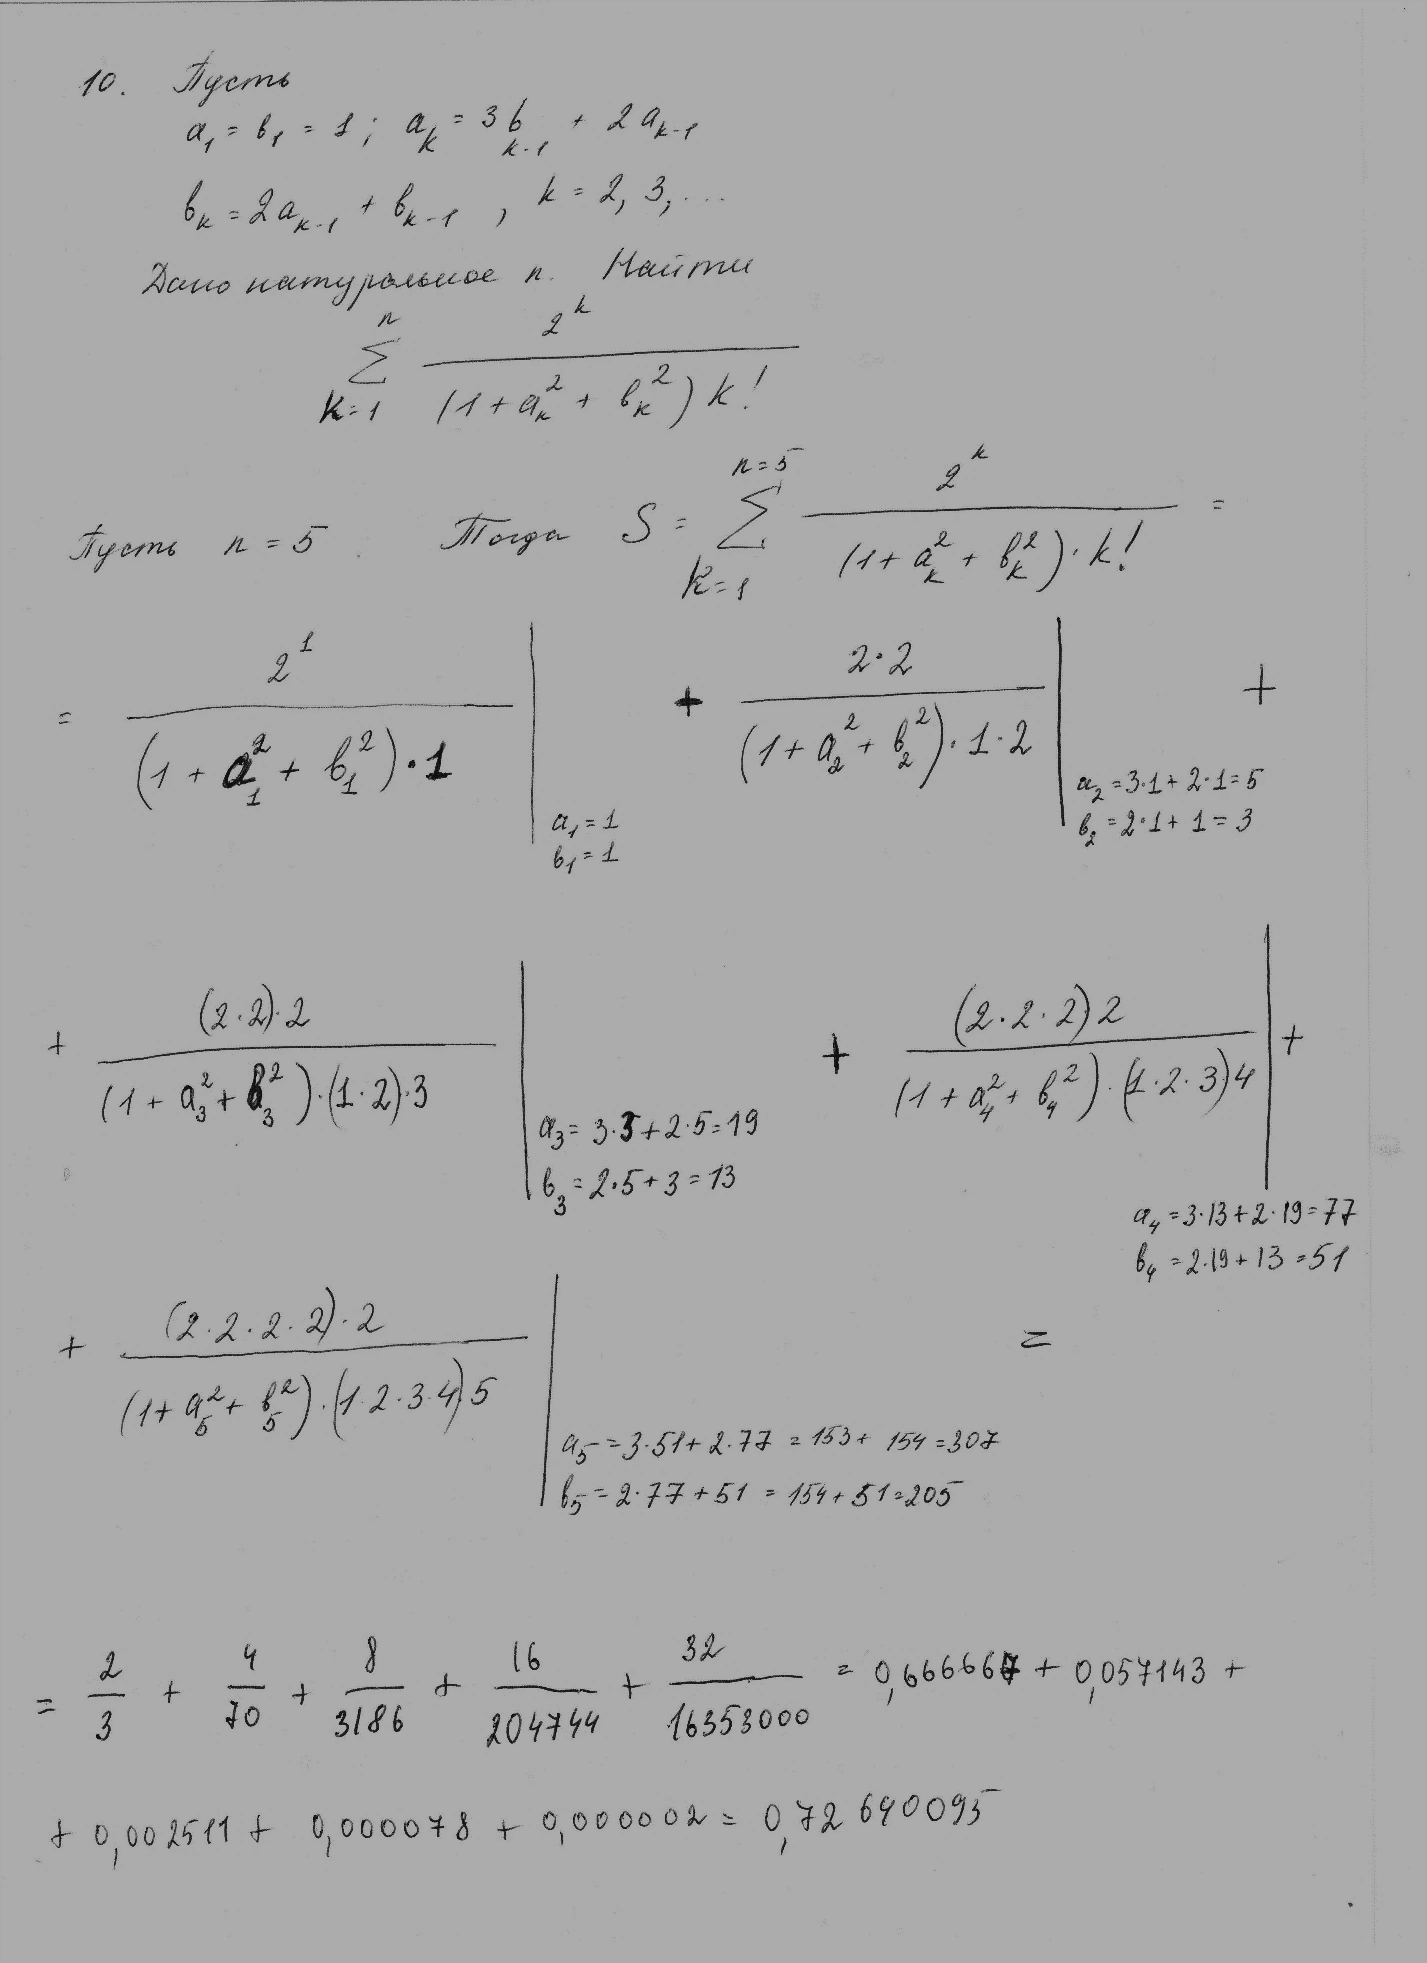 10. Пусть
a₁ = b₁ = 1; aₖ = 3bₖ₋₁ + 2aₖ₋₁
bₖ = 2aₖ₋₁ + bₖ₋₁, k = 2, 3, ...
Дано натуральное n. Найти
∑ₖ₌₁ⁿ 2ᵏ / ((1 + aₖ² + bₖ²) k!)
Пусть n = 5. Тогда S = ∑ₖ₌₁ⁿ⁼⁵ 2ᵏ / ((1 + aₖ² + bₖ²) · k!) =
= 2¹ / ((1 + a₁² + b₁²) · 1) | a₁ = 1 b₁ = 1 + 2·2 / ((1 + a₂² + b₂²) · 1·2) | a₂ = 3·1 + 2·1 = 5 b₂ = 2·1 + 1 = 3 +
+ (2·2)·2 / ((1 + a₃² + b₃²)·(1·2)·3) | a₃ = 3·3 + 2·5 = 19 b₃ = 2·5 + 3 = 13 + (2·2·2)2 / ((1 + a₄² + b₄²)·(1·2·3)4) | a₄ = 3·13 + 2·19 = 77 b₄ = 2·19 + 13 = 51 +
+ (2·2·2·2)·2 / ((1 + a₅² + b₅²)·(1·2·3·4)5) | a₅ = 3·51 + 2·77 = 153 + 154 = 307 b₅ = 2·77 + 51 = 154 + 51 = 205 =
= 2/3 + 4/70 + 8/3186 + 16/204744 + 32/16353000 = 0,666667 + 0,057143 +
+ 0,002511 + 0,000078 + 0,000002 = 0,72640095